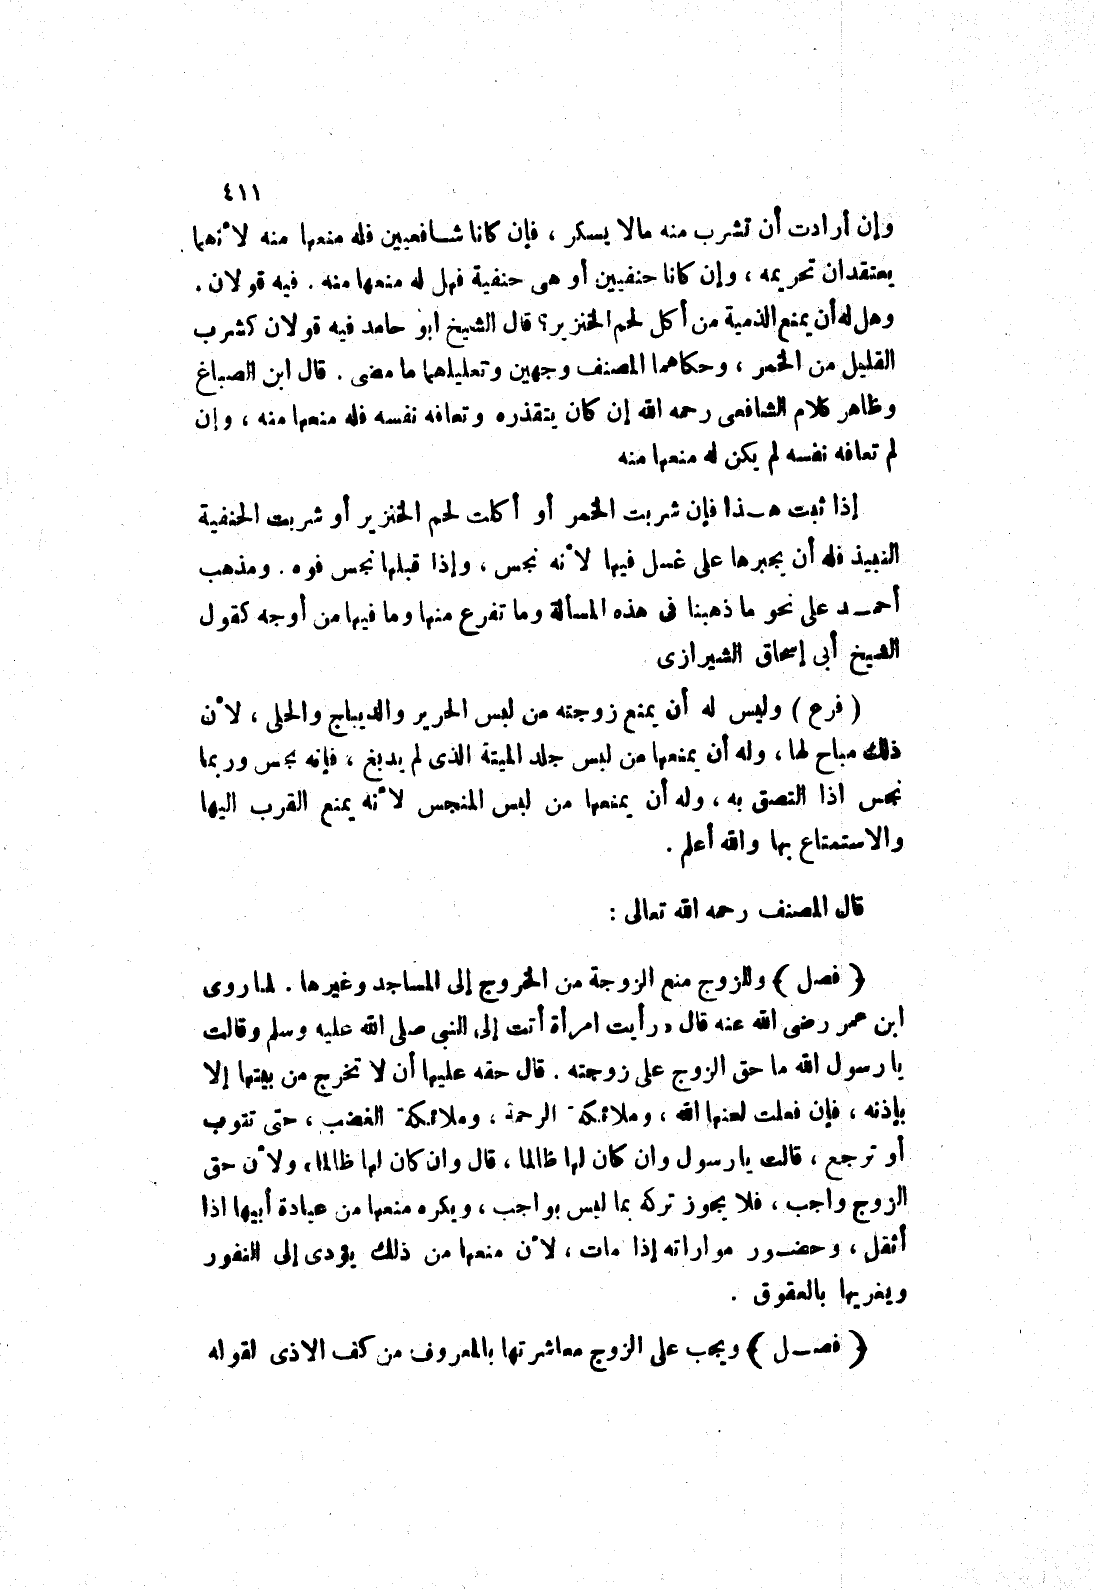 ٤١١
وإن أرادت أن تشرب منه مالا يسكر ، فإن كانا شافعيين فله منعها منه لأنهما
يعتقدان تحريمه ، وإن كانا حنفيين أو هى حنفية فهل له منعها منه . فيه قولان .
وهل له أن يمنع الذمية من أكل لحم الخنزير؟ قال الشيخ ابو حامد فيه قولان كشرب
القليل من الخمر ، وحكاهما المصنف وجهين وتعليلهما ما مضى . قال ابن الصباغ
وظاهر كلام الشافعى رحمه الله إن كان يتقذره وتعافه نفسه فله منعها منه ، وإن
لم تعافه نفسه لم يكن له منعها منه
إذا ثبت هذا فإن شربت الخمر أو أكلت لحم الخنزير أو شربت الحنفية
النبيذ فله أن يجبرها على غسل فيها لأنه نجس ، وإذا قبلها نجس فوه . ومذهب
أحمد على نحو ما ذهبنا فى هذه المسألة وما تفرع منها وما فيها من أوجه كقول
الشيخ أبى إسحاق الشيرازى
( فرع ) وليس له أن يمنع زوجته من لبس الحرير والديباج والحلى ، لأن
ذلك مباح لها ، وله أن يمنعها من لبس جلد الميتة الذى لم يدبغ ، فإنه نجس وربما
نجس اذا التصق به ، وله أن يمنعها من لبس المنجس لأنه يمنع القرب اليها
والاستمتاع بها والله أعلم .
قال المصنف رحمه الله تعالى :
﴿ فصل ﴾ وللزوج منع الزوجة من الخروج إلى المساجد وغيرها . لما روى
ابن عمر رضى الله عنه قال « رأيت امرأة أتت إلى النبى صلى الله عليه وسلم وقالت
يا رسول الله ما حق الزوج على زوجته . قال حقه عليها أن لا تخرج من بيتها إلا
بإذنه ، فإن فعلت لعنها الله ، وملائكة الرحمة ، وملائكة الغضب ، حتى تتوب
أو ترجع ، قالت يا رسول وان كان لها ظالما ، قال وان كان لها ظالما ، ولأن حق
الزوج واجب ، فلا يجوز تركه بما ليس بواجب ، ويكره منعها من عيادة أبيها اذا
أثقل ، وحضور مواراته إذا مات ، لأن منعها من ذلك يؤدى إلى النفور
ويغريها بالعقوق .
﴿ فصل ﴾ ويجب على الزوج معاشرتها بالمعروف من كف الاذى لقوله